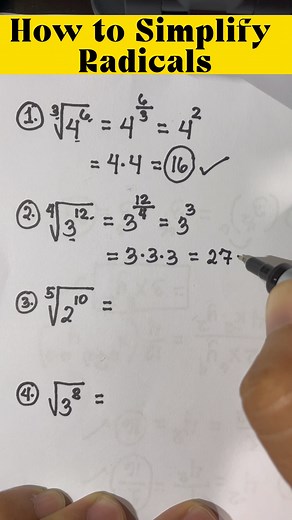 How to Simplify
Radicals
1. ∛4⁶ = 4^(6/3) = 4²
= 4·4 = 16 ✓
2. ∜3¹² = 3^(12/4) = 3³
= 3·3·3 = 27
3. ⁵√2¹⁰ =
4. √3⁸ =